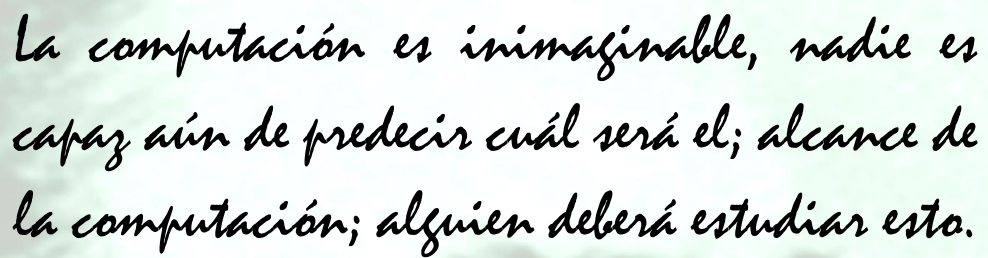 La computación es inimaginable, nadie es
capaz aún de predecir cuál será el; alcance de
la computación; alguien deberá estudiar esto.